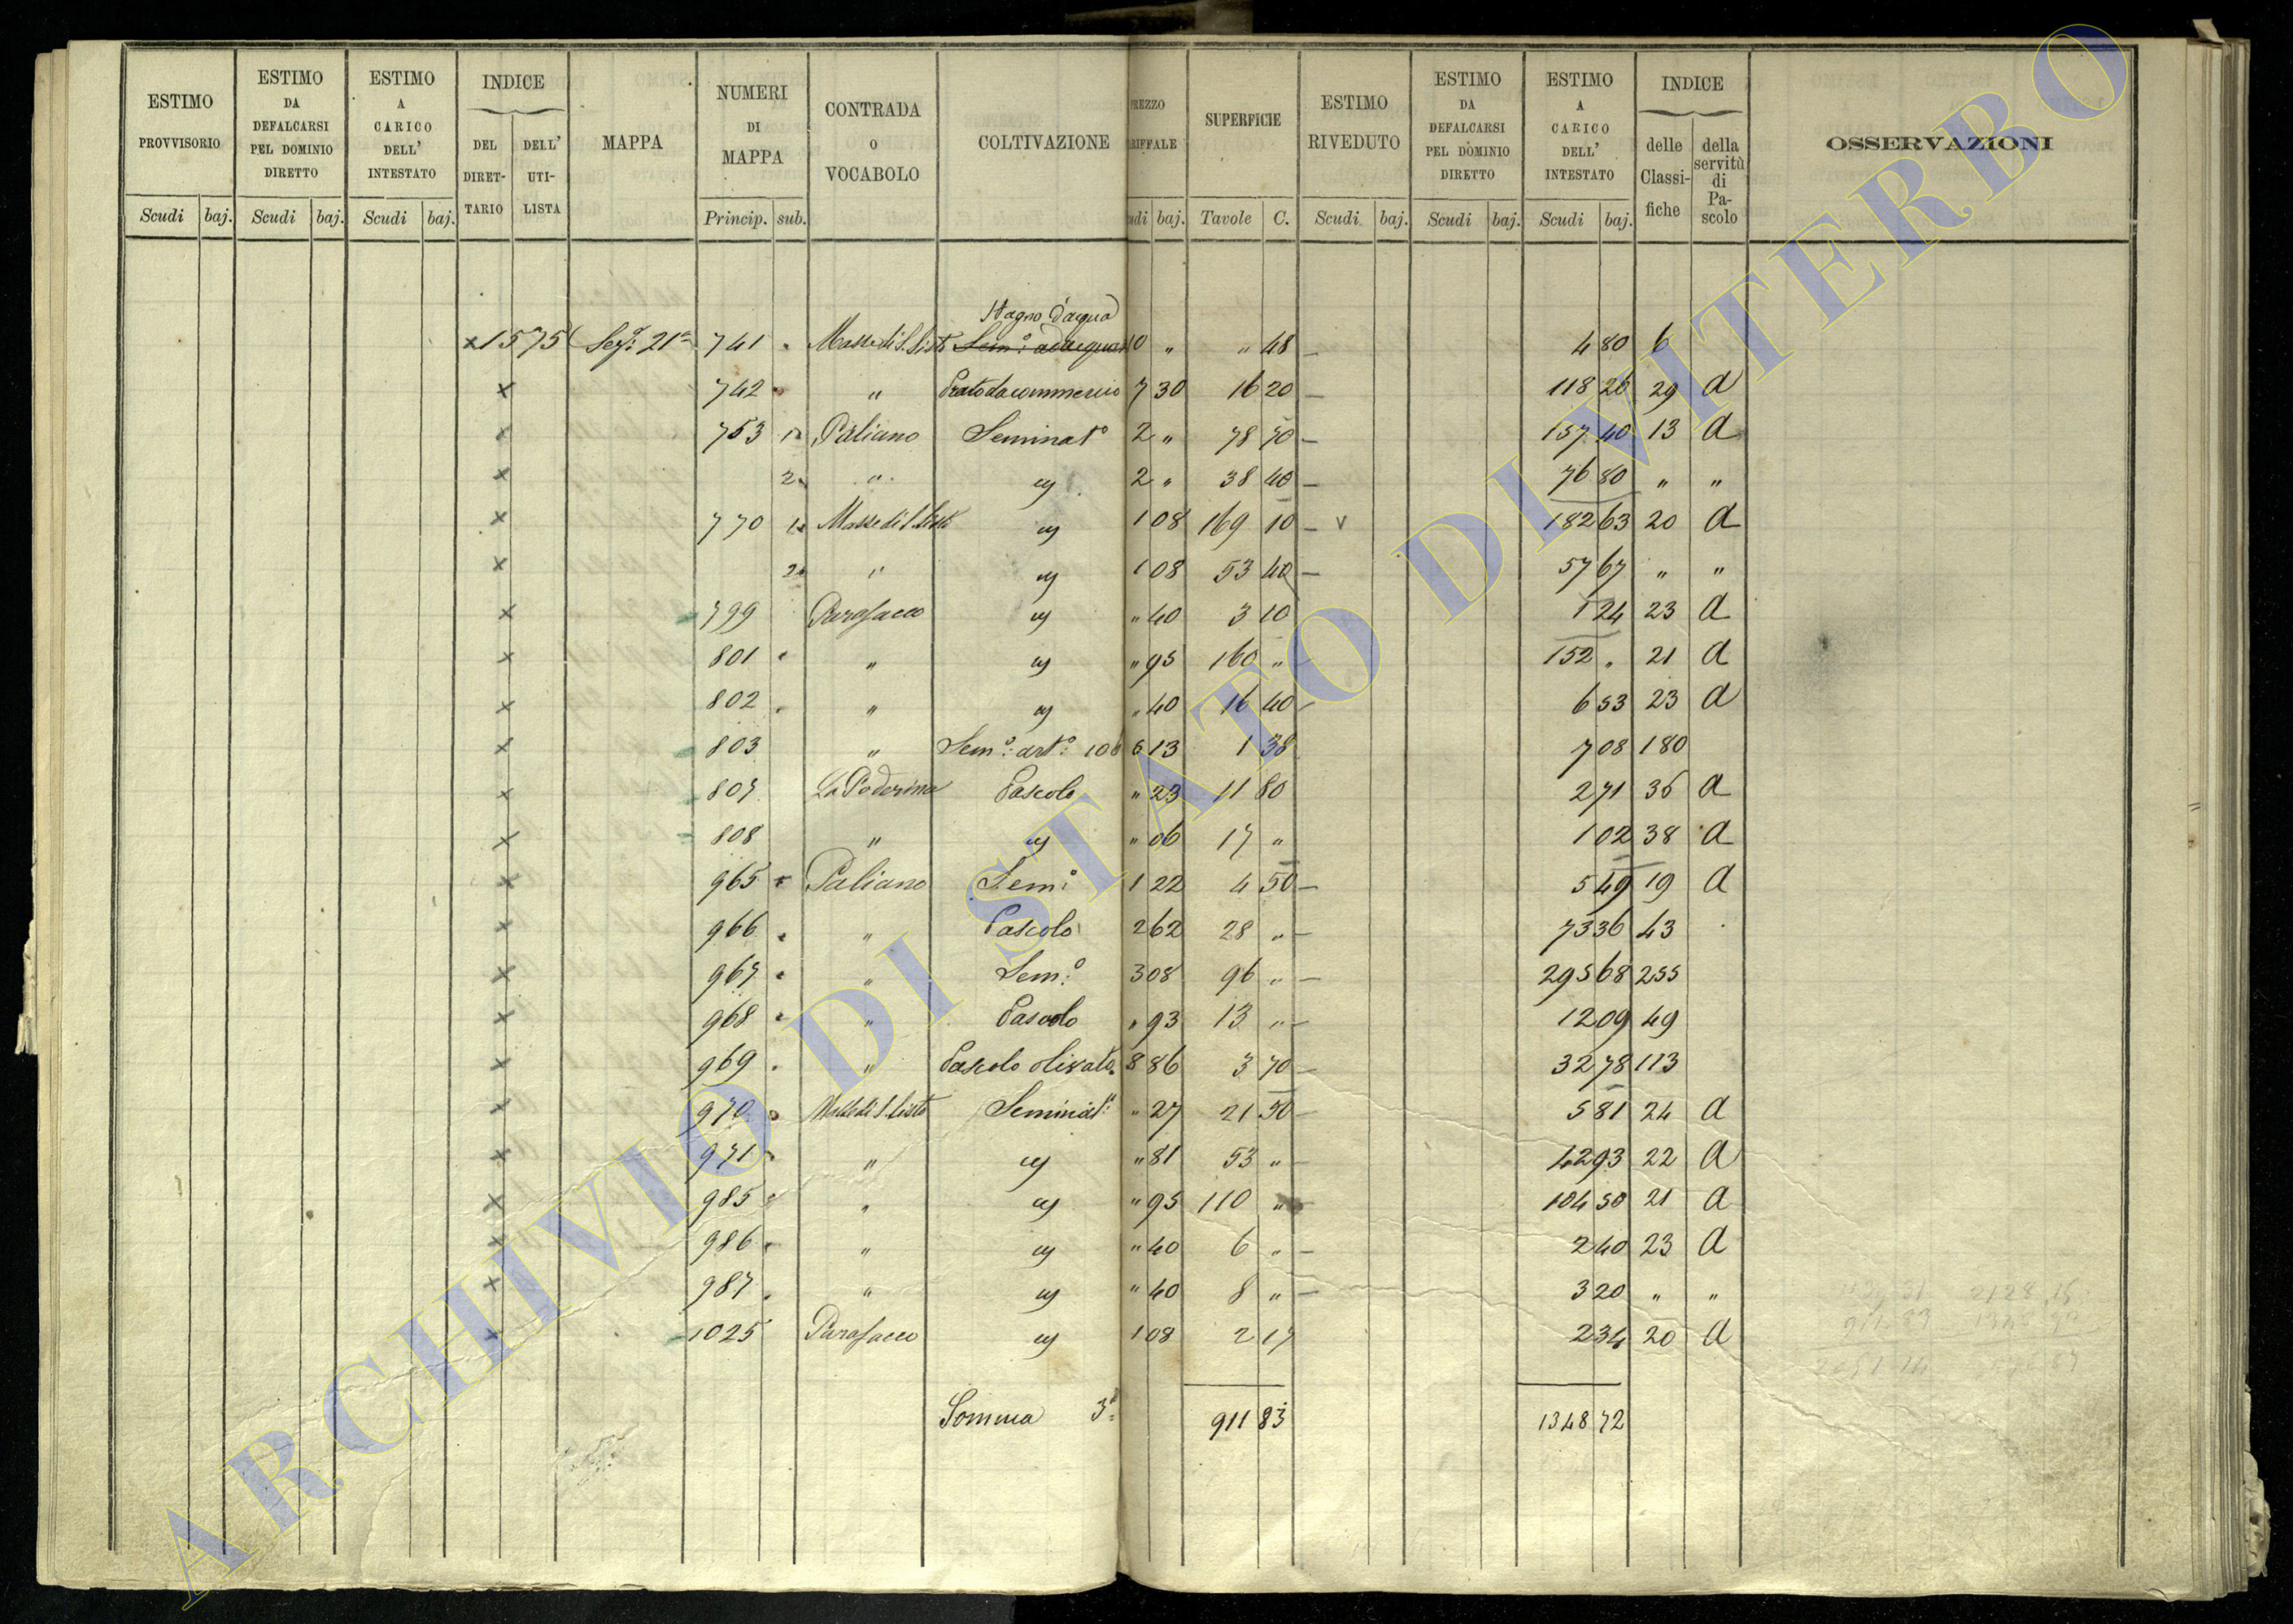 ESTIMO PROVVISORIO Scudi baj.
ESTIMO DA DEFALCARSI PEL DOMINIO DIRETTO Scudi baj.
ESTIMO A CARICO DELL' INTESTATO Scudi baj.
INDICE DEL DIRETTARIO DELL' UTILISTA
MAPPA
NUMERI DI MAPPA Princip. sub.
CONTRADA O VOCABOLO
COLTIVAZIONE
PREZZO RIFFALE udi baj.
SUPERFICIE Tavole C.
ESTIMO RIVEDUTO Scudi baj.
ESTIMO DA DEFALCARSI PEL DOMINIO DIRETTO Scudi baj.
ESTIMO A CARICO DELL' INTESTATO Scudi baj.
INDICE delle Classifiche della servitù di Pascolo
OSSERVAZIONI
Stagno d'acqua
x 1575 Seg: 21a 741 Masse di S. Sisto Sem: adacquat 10 " " 48 4 80 6
x 742 " Prato da commercio 7 30 16 20 118 26 29 A
x 753 1 Paliano Seminat° 2 " 78 70 157 40 13 A
x 2 " eg 2 " 38 40 76 80 " "
x 770 1 Masse di S. Sisto eg 1 08 169 10 v 182 63 20 A
x 2 " eg 1 08 53 40 57 67 " "
x 799 Parosacco eg " 40 3 10 1 24 23 A
x 801 " eg " 95 160 " 152 " 21 A
x 802 " eg " 40 16 40 6 53 23 A
x 803 " Sem°: art°: 106 5 13 1 38 7 08 180
x 807 La Poderina Pascolo " 23 11 80 2 71 36 A
x 808 " eg " 06 17 " 1 02 38 A
x 965 Paliano Sem° 1 22 4 50 5 49 19 A
x 966 " Pascolo 2 62 28 " 73 36 43
x 967 " Sem:° 3 08 96 " 295 68 255
x 968 " Pascolo " 93 13 " 12 09 49
x 969 " Pascolo olivato 8 86 3 70 32 78 113
x 970 Masse di S. Sisto Seminat: " 27 21 50 5 81 24 A
x 971 " eg " 81 53 " 42 93 22 A
x 985 " eg " 95 110 " 104 50 21 A
x 986 " eg " 40 6 " 2 40 23 A
x 987 " eg " 40 8 " 3 20 " "
x 1025 Parosacco eg 1 08 2 17 2 34 20 A
Somma 3a 911 83 1348 72
ARCHIVIO DI STATO DI VITERBO